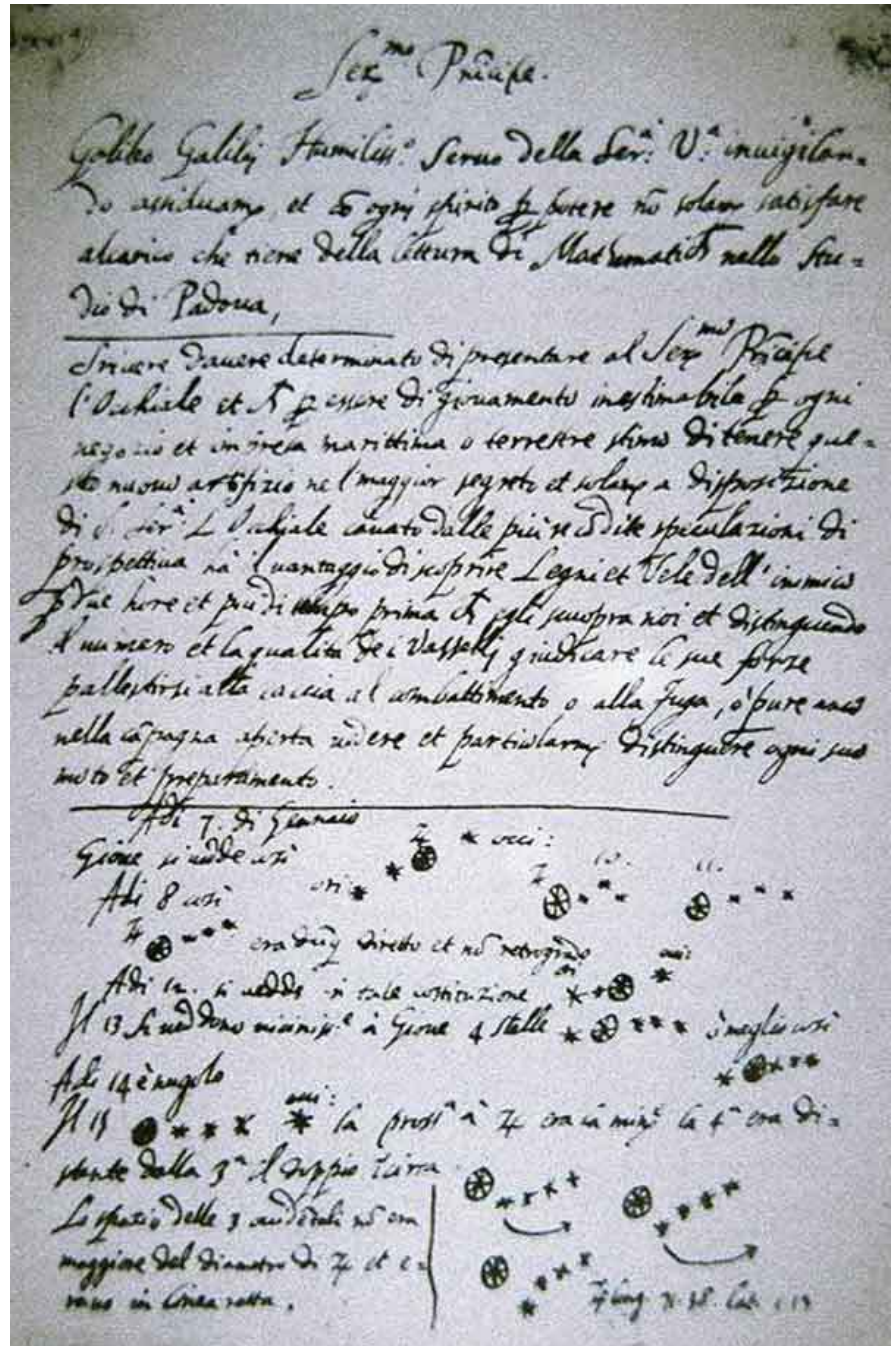 Ser.mo Prīcipe.
Galileo Galilej Humiliss.o Seruo della Ser.a V.a inuigilan=
do assiduam.e, et cō ogni spirito p potere nō solam.e satisfare
alcarico che tiene della lettura di Mathematica nello Stu=
dio di Padoua,
Scriuere dauere determinato di presentare al Ser.mo Prīcipe
l'Occhiale et p essere di giouamento inestimabile p ogni
negozio et impresa marittima o terrestre stimo di tenere que=
sto nuouo artifizio nel maggior segreto et solam.e a disposizione
di S. Ser.a L'Occhiale cauato dalle più recōdite speculazioni di
prospettiua hà l'uantaggio di scoprire Legni et Vele dell'inimico
p due hore et più di tempo prima egli scuopra noi et distinguendo
il numero et la qualità de i Vasselli giudicare le sue forze
pallestirsi alla caccia al combattimento o alla fuga, ò pure anco
nella cāpagna aperta uedere et particolarm.e distinguere ogni suo
moto et preparamento.
Adi 7. di Gennaio
Gioue si uedde così ♃ occi:
Adi 8 così ori ♃ 10. 11.
♃ era dūq diretto et nō retrogrado
Adi 12. si uedde in tale costituzione ori occi
Il 13 si ueddono à Gioue 4 stelle ò meglio così
Adi 14 è nugolo
Il 15 occi: la pross.a à ♃ era la min.e la 4.a era di=
stante dalla 3.a il doppio Ĩcirca
Lo spatio delle 3 occidētali nō era
maggiore del diametro di ♃ et e=
rano in linea retta.
♃ long. 71.38. Lat. 1.13